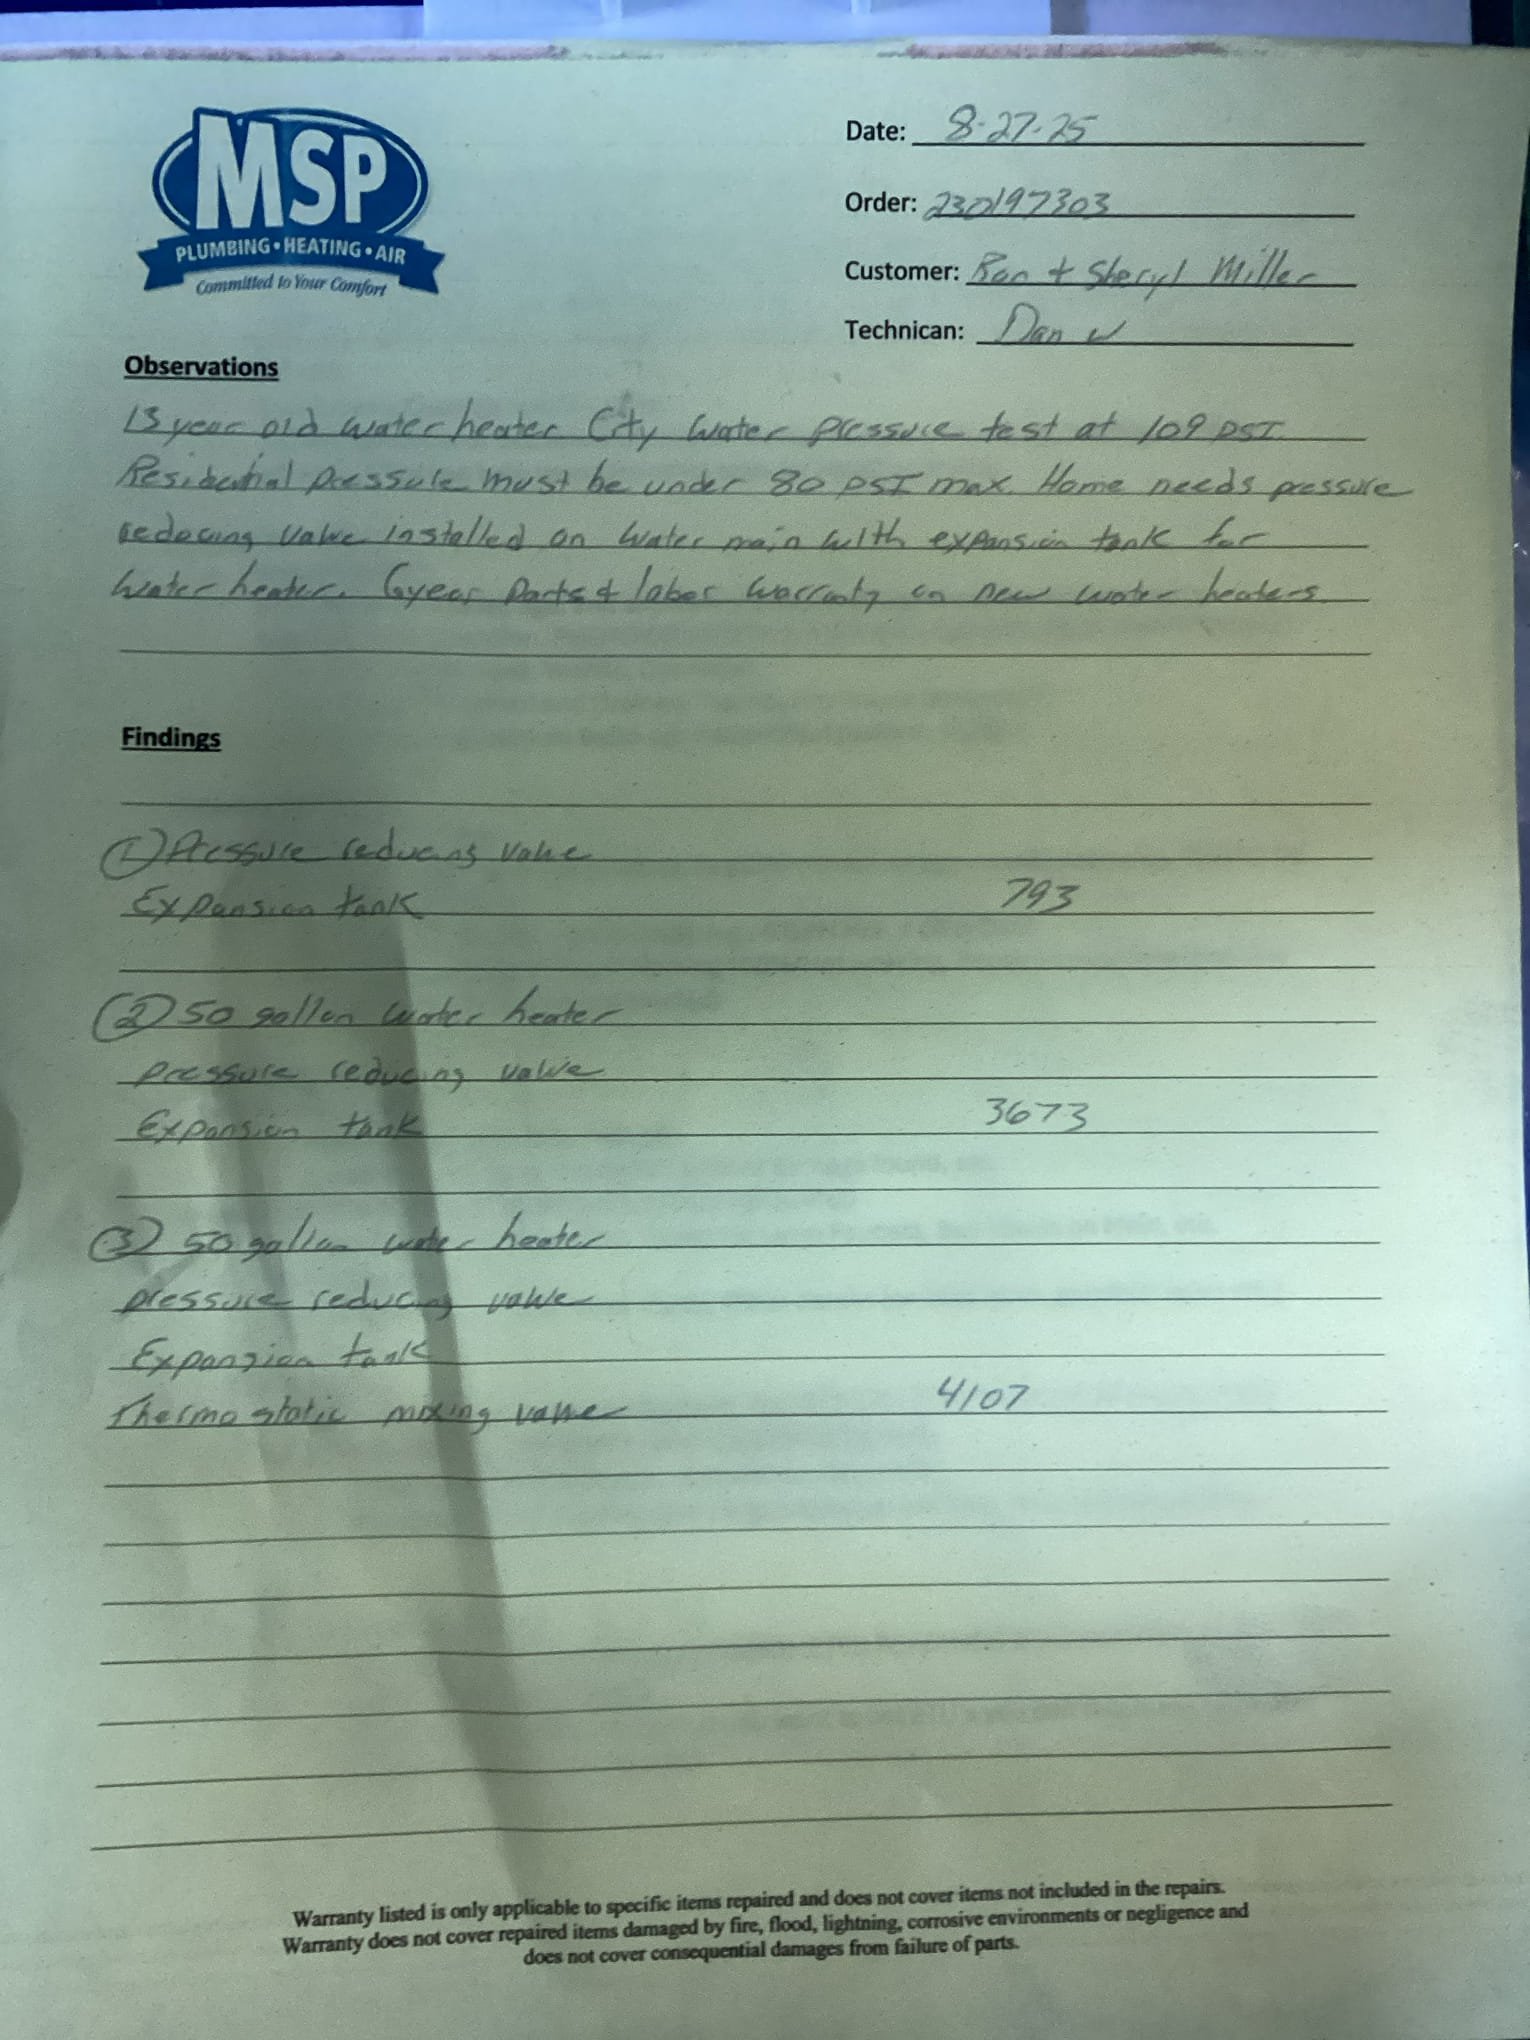 MSP
PLUMBING • HEATING • AIR
Committed to Your Comfort
Date: 8-27-25
Order: 230197303
Customer: Ron + Sheryl Miller
Technican: Dan W
Observations
13 year old water heater City Water pressure test at 109 PSI.
Residential pressure must be under 80 PSI max. Home needs pressure
reducing valve installed on water main with expansion tank for
water heater. 6 year parts + labor warranty on new water heaters
Findings
① Pressure reducing valve
Expansion tank 793
② 50 gallon water heater
pressure reducing valve
Expansion tank 3673
③ 50 gallon water heater
pressure reducing valve
Expansion tank
Thermostatic mixing valve 4107
Warranty listed is only applicable to specific items repaired and does not cover items not included in the repairs.
Warranty does not cover repaired items damaged by fire, flood, lightning, corrosive environments or negligence and
does not cover consequential damages from failure of parts.